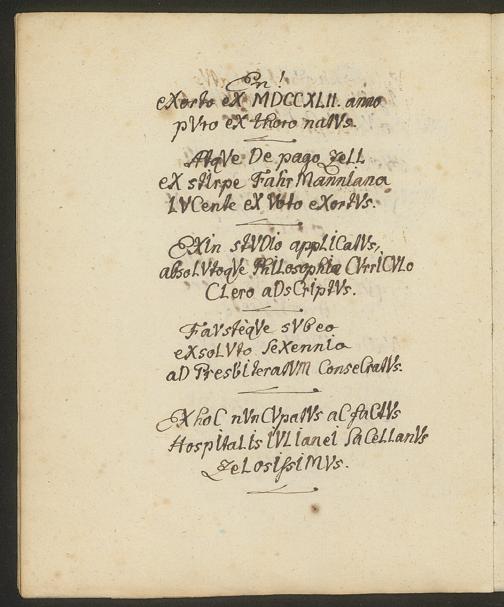 En!
eXorto eX MDCCXLII. anno
pVro eX thoro natVs.
AtqVe De pago ZeLL
eX stIrpe FuhrManniana
LVCente eX Voto eXortVs.
EXin stVDIo appLICatVs,
absoLVtoqVe PhILosophiæ CVrrICVLo
CLero aDsCrIptVs.
FaVstèqVe sVb eo
eXsoLVto seXennio
aD PresbIteratVM ConseCratVs.
EX hoC nVnCVpatVs aC faCtVs
HospItaLIs IVLIaneI saCeLLanVs
ZeLosIssIMVs.